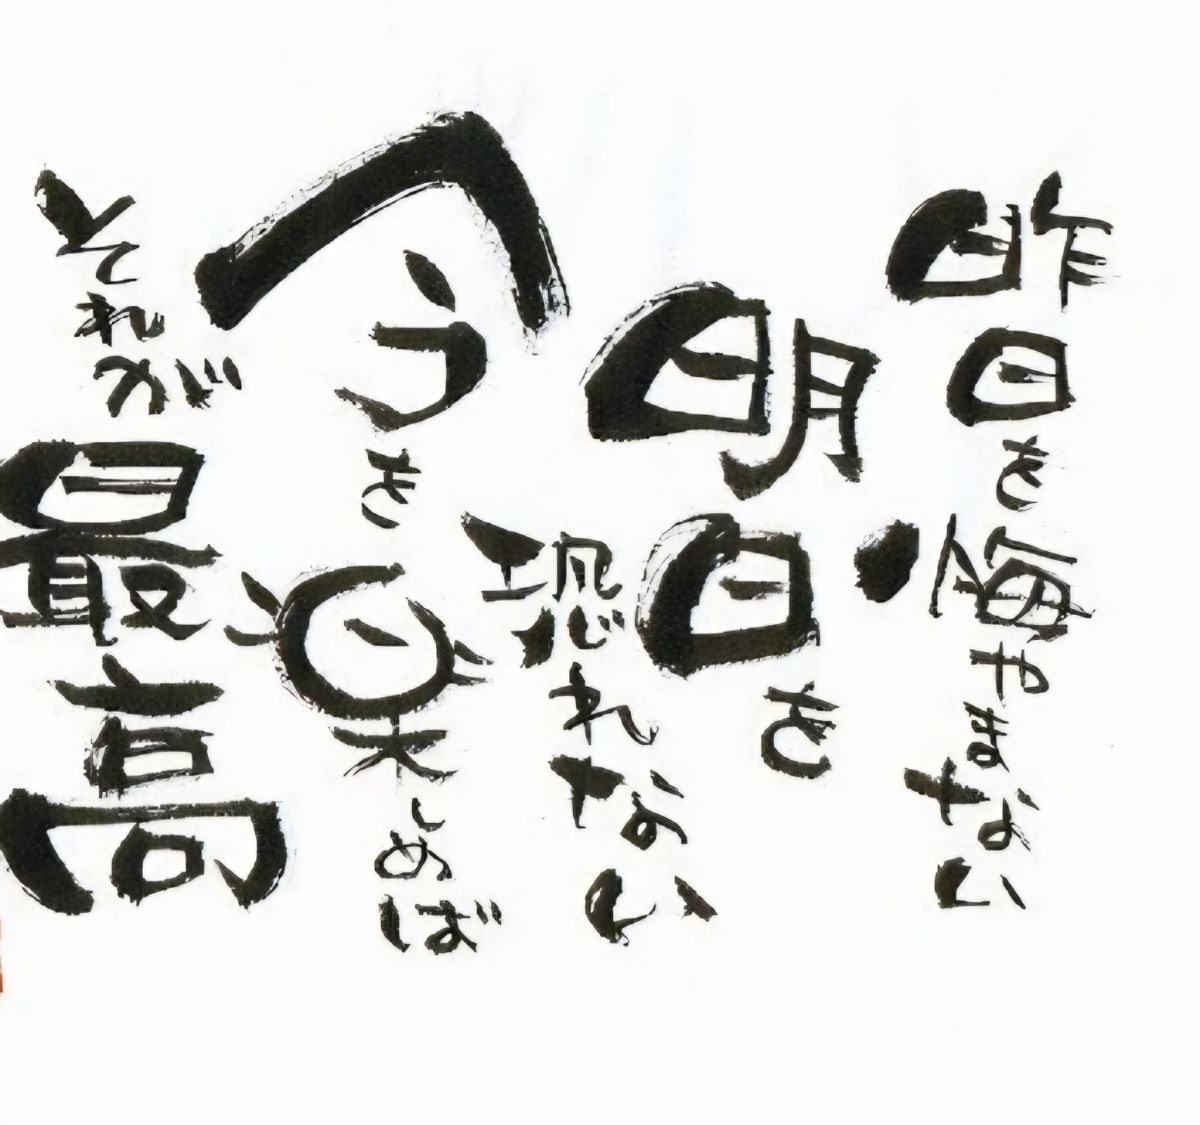 昨日を悔やまない
明日を
恐れない
今を楽しめば
それが最高